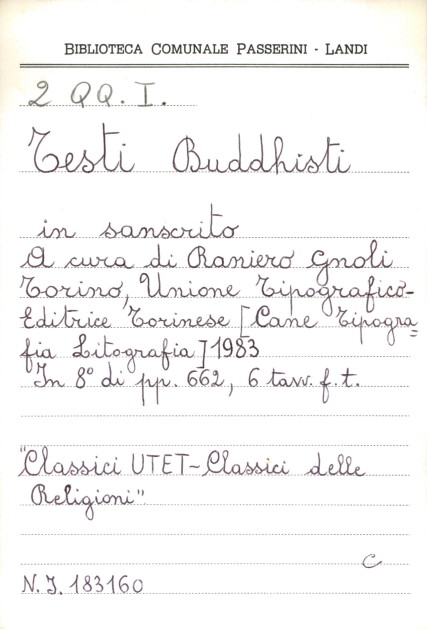 BIBLIOTECA COMUNALE PASSERINI - LANDI
2 QQ. I.
Testi Buddhisti
in sanscrito
A cura di Raniero Gnoli
Torino, Unione Tipografico-
Editrice Torinese [Cane Tipogra=
fia Litografia] 1983
In 8° di pp. 662, 6 tavv. f. t.
"Classici UTET-Classici delle
Religioni"
C
N. I. 183160